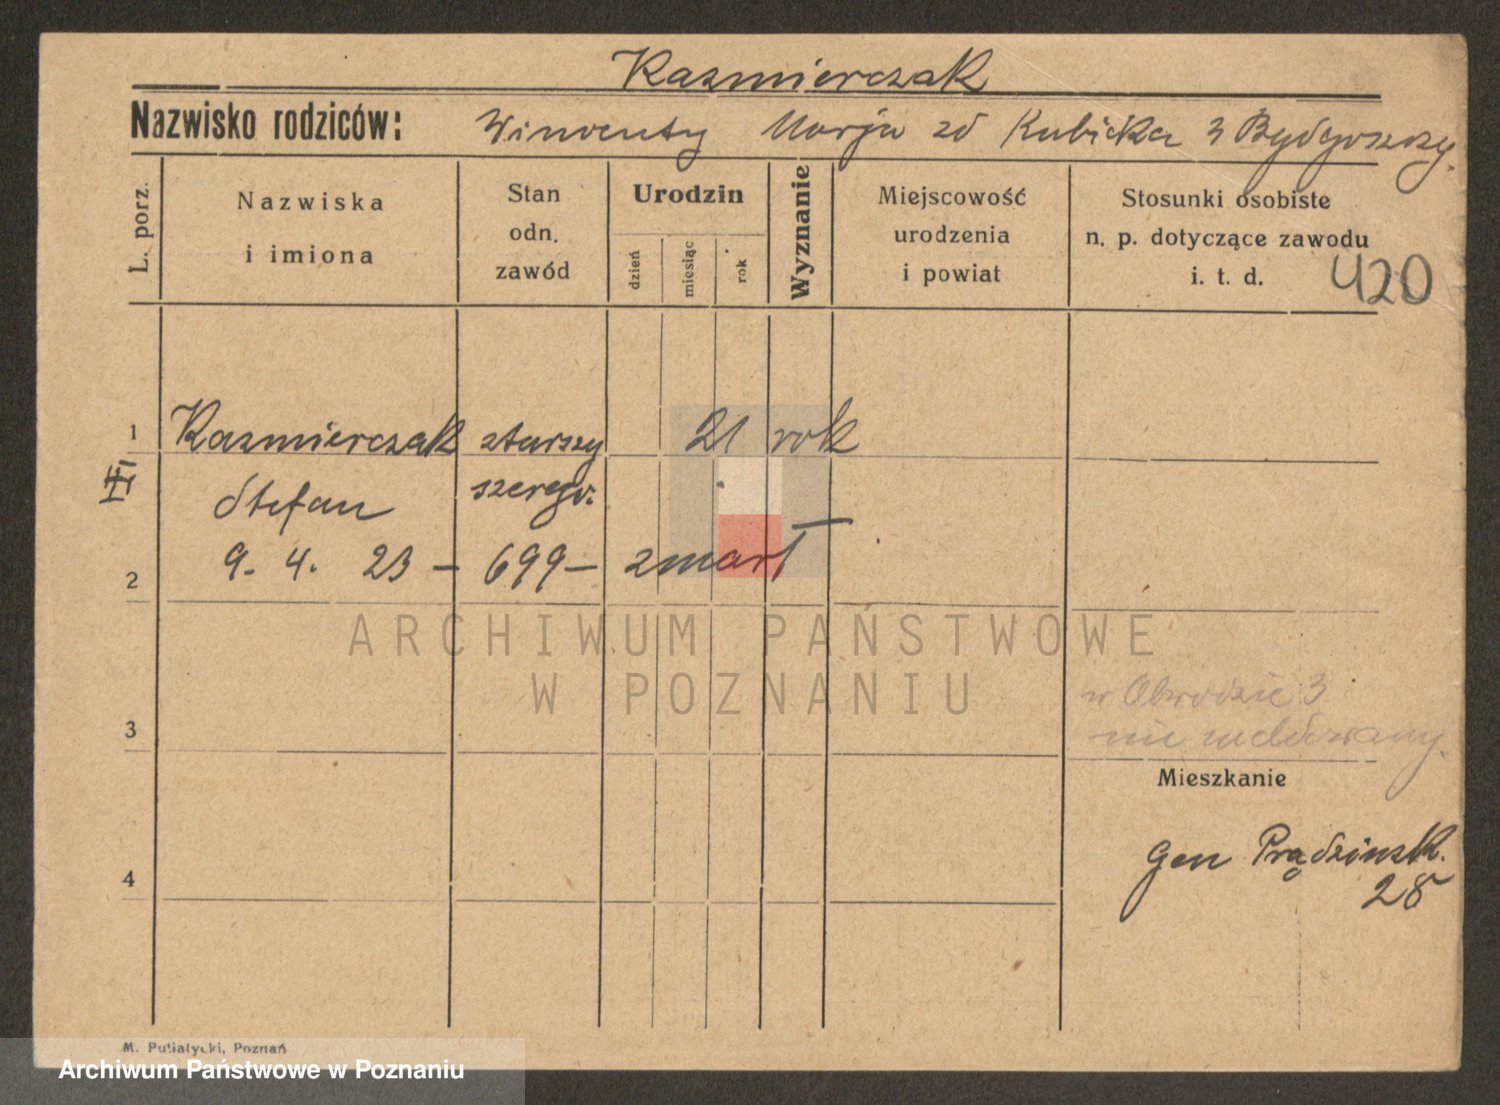 Kazmierczak
Nazwisko rodziców: Wincenty Marja zd Kubicka z Bydgoszczy.
L. porz.
Nazwiska
i imiona
Stan
odn.
zawód
Urodzin
dzień
miesiąc
rok
Wyznanie
Miejscowość
urodzenia
i powiat
Stosunki osobiste
n. p. dotyczące zawodu
i. t. d.
420
1 Kazmierczak starszy 21 rok
III
Stefan szereg.
2 9. 4. 23 – 699 – zmarł
ARCHIWUM PAŃSTWOWE
W POZNANIU
3
w Obwodzie 3
nie meldowany.
Mieszkanie
4
Gen Prądzińsk.
28
M. Putiatycki, Poznań
Archiwum Państwowe w Poznaniu